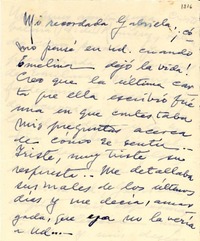 1816
Mi recordada Gabriela; có
mo pensé en ud. cuando
Emelina dejó la vida!
Creo que la última car
ta que ella escribió fué
una en que contestaba
mis preguntas acerca
de como se sentía..
Triste, muy triste su
respuesta.. Me detallaba
sus males de los últimos
días y me decía, amar
gada, que ya no la vería
a Ud....